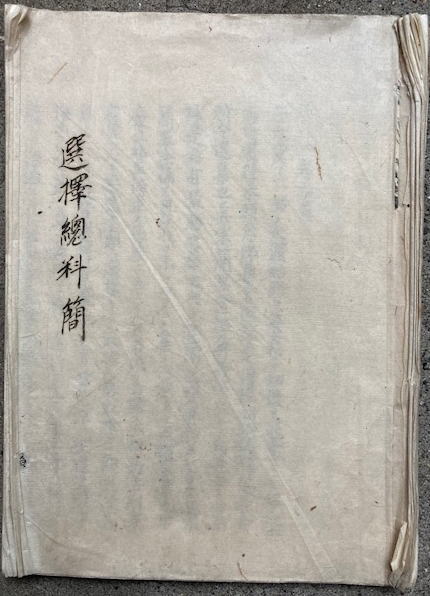 選擇總料簡